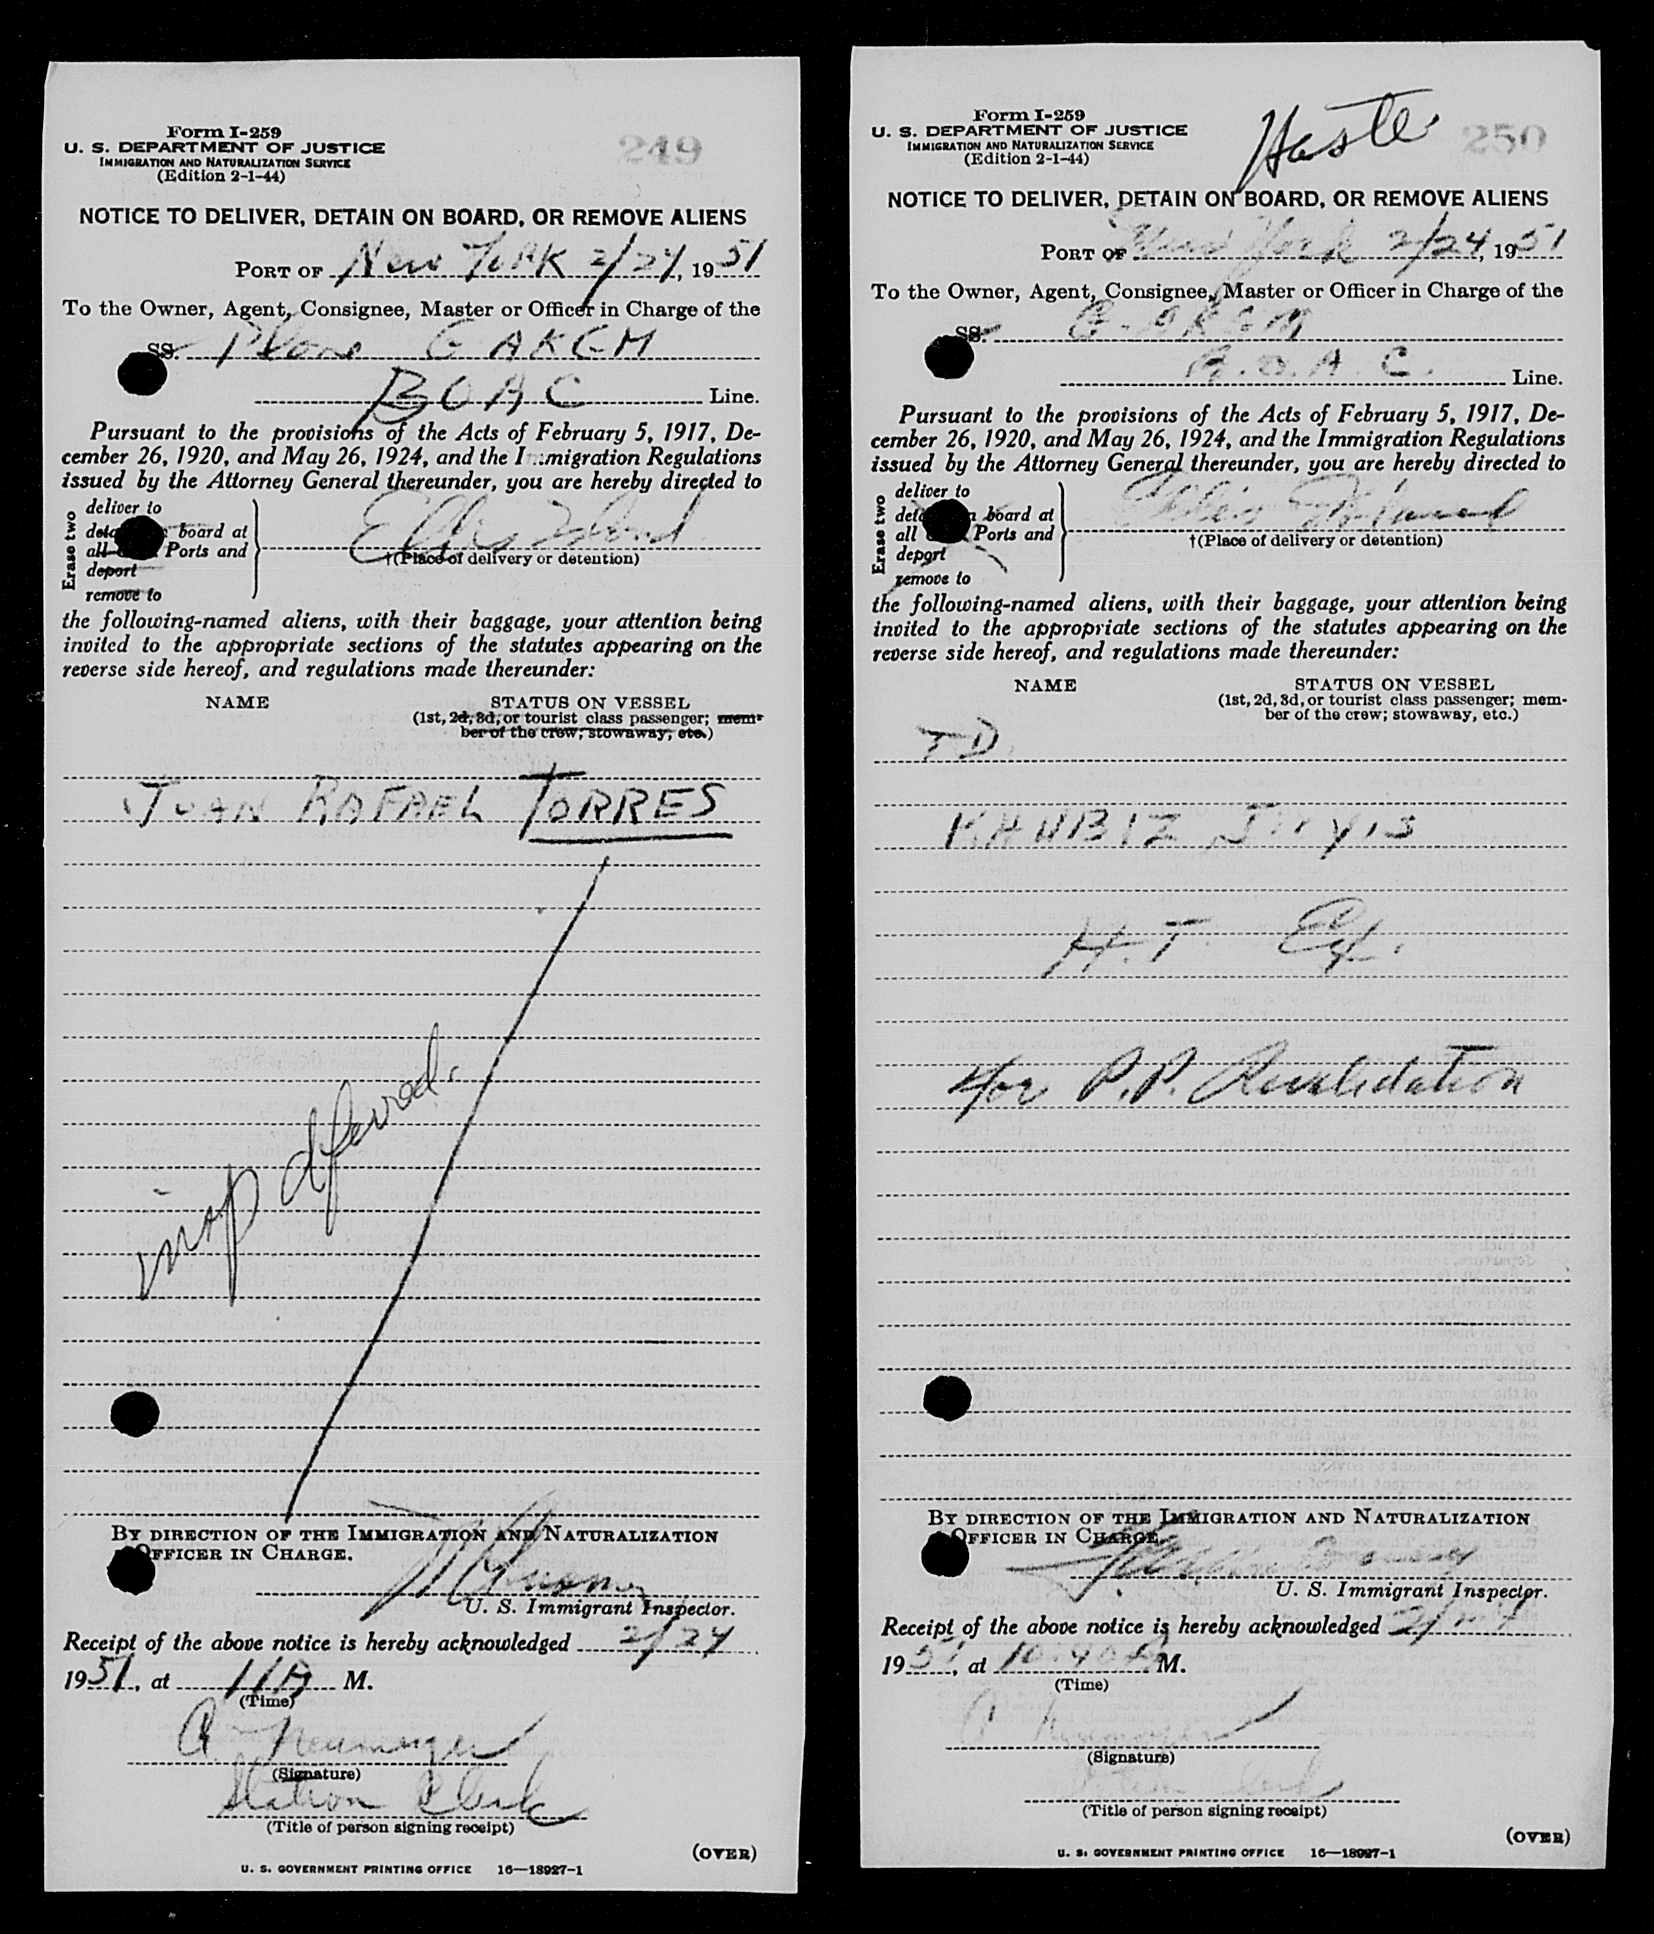 Form I-259
U. S. DEPARTMENT OF JUSTICE
IMMIGRATION AND NATURALIZATION SERVICE
(Edition 2-1-44)
249
NOTICE TO DELIVER, DETAIN ON BOARD, OR REMOVE ALIENS
PORT OF New York 2/24, 1951
To the Owner, Agent, Consignee, Master or Officer in Charge of the
SS. Plane G AKGM
BOAC Line.
Pursuant to the provisions of the Acts of February 5, 1917, De-
cember 26, 1920, and May 26, 1924, and the Immigration Regulations
issued by the Attorney General thereunder, you are hereby directed to
Erase two
deliver to
board at
all Ports and
deport
remove to
Ellis Island
†(Place of delivery or detention)
the following-named aliens, with their baggage, your attention being
invited to the appropriate sections of the statutes appearing on the
reverse side hereof, and regulations made thereunder:
NAME STATUS ON VESSEL
(1st, 2d, 3d, or tourist class passenger; mem-
ber of the crew; stowaway, etc.)
JUAN RAFAEL TORRES
insp dferred.
BY DIRECTION OF THE IMMIGRATION AND NATURALIZATION
OFFICER IN CHARGE.
U. S. Immigrant Inspector.
Receipt of the above notice is hereby acknowledged 2/24
1951, at 11A M.
(Time)
(Signature)
Station Clerk
(Title of person signing receipt)
(OVER)
U. S. GOVERNMENT PRINTING OFFICE 16—18927-1
Form I-259
U. S. DEPARTMENT OF JUSTICE
IMMIGRATION AND NATURALIZATION SERVICE
(Edition 2-1-44)
Haste
250
NOTICE TO DELIVER, DETAIN ON BOARD, OR REMOVE ALIENS
PORT OF New York 2/24, 1951
To the Owner, Agent, Consignee, Master or Officer in Charge of the
SS. G-AKGM
B.O.A.C. Line.
Pursuant to the provisions of the Acts of February 5, 1917, De-
cember 26, 1920, and May 26, 1924, and the Immigration Regulations
issued by the Attorney General thereunder, you are hereby directed to
Erase two
deliver to
board at
all Ports and
deport
remove to
Ellis Island
†(Place of delivery or detention)
the following-named aliens, with their baggage, your attention being
invited to the appropriate sections of the statutes appearing on the
reverse side hereof, and regulations made thereunder:
NAME STATUS ON VESSEL
(1st, 2d, 3d, or tourist class passenger; mem-
ber of the crew; stowaway, etc.)
TD
H.T. Ex.
for P.P. Revalidation
BY DIRECTION OF THE IMMIGRATION AND NATURALIZATION
OFFICER IN CHARGE.
U. S. Immigrant Inspector.
Receipt of the above notice is hereby acknowledged 2/24
1951, at 10:40 A M.
(Time)
(Signature)
Station Clerk
(Title of person signing receipt)
(OVER)
U. S. GOVERNMENT PRINTING OFFICE 16—18927-1